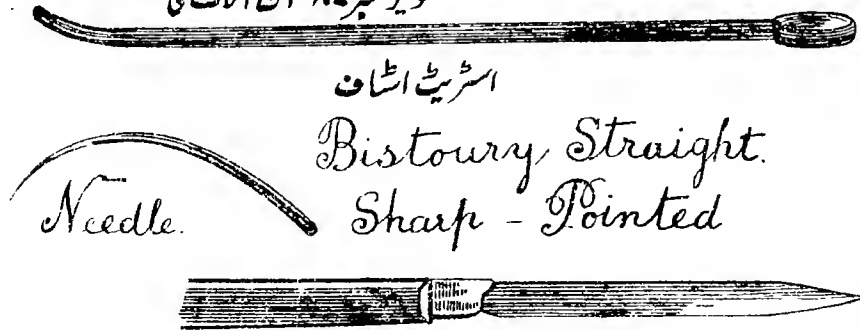 اسٹریٹ اسٹاف
Bistoury, Straight.
Needle.
Sharp - Pointed